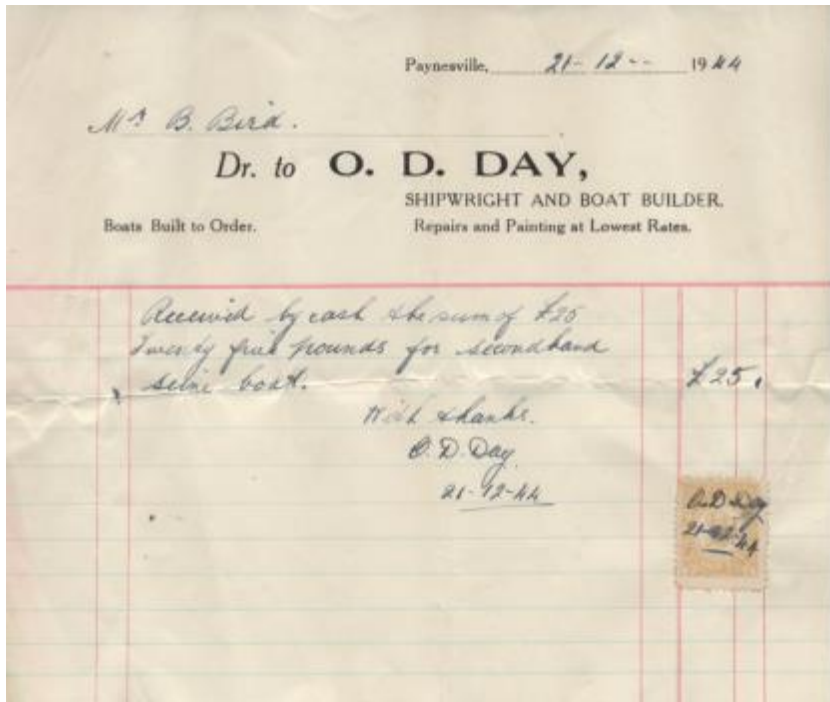 Paynesville, 21-12-- 1944
Mr B. Bird.
Dr. to O. D. DAY,
SHIPWRIGHT AND BOAT BUILDER.
Boats Built to Order. Repairs and Painting at Lowest Rates.
Received by cash the sum of £25
Twenty five pounds for secondhand
seine boat. £25.
With thanks.
O. D. Day
21-12-44
O. D Day
21-12-44